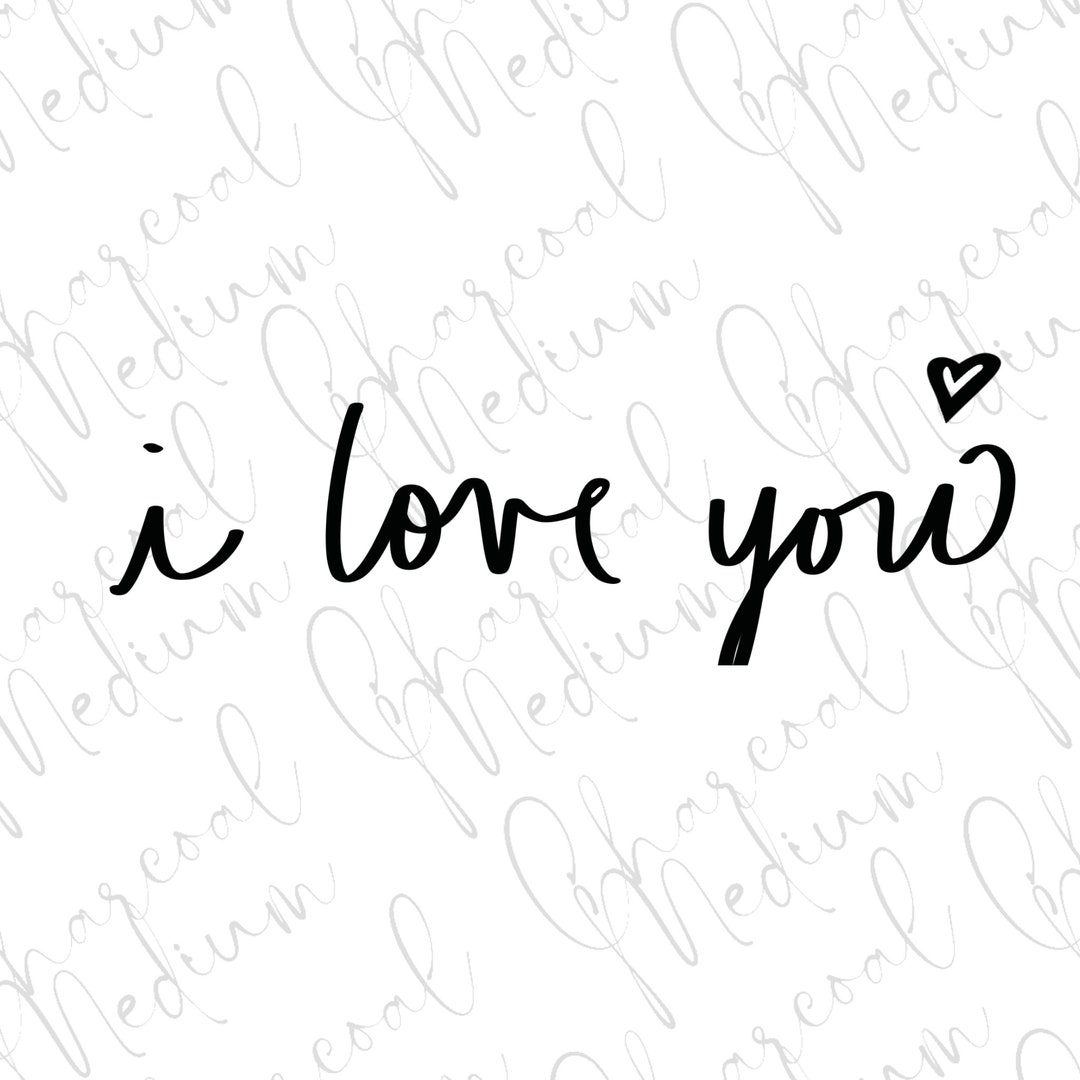 i love you
Charcoal
Medium